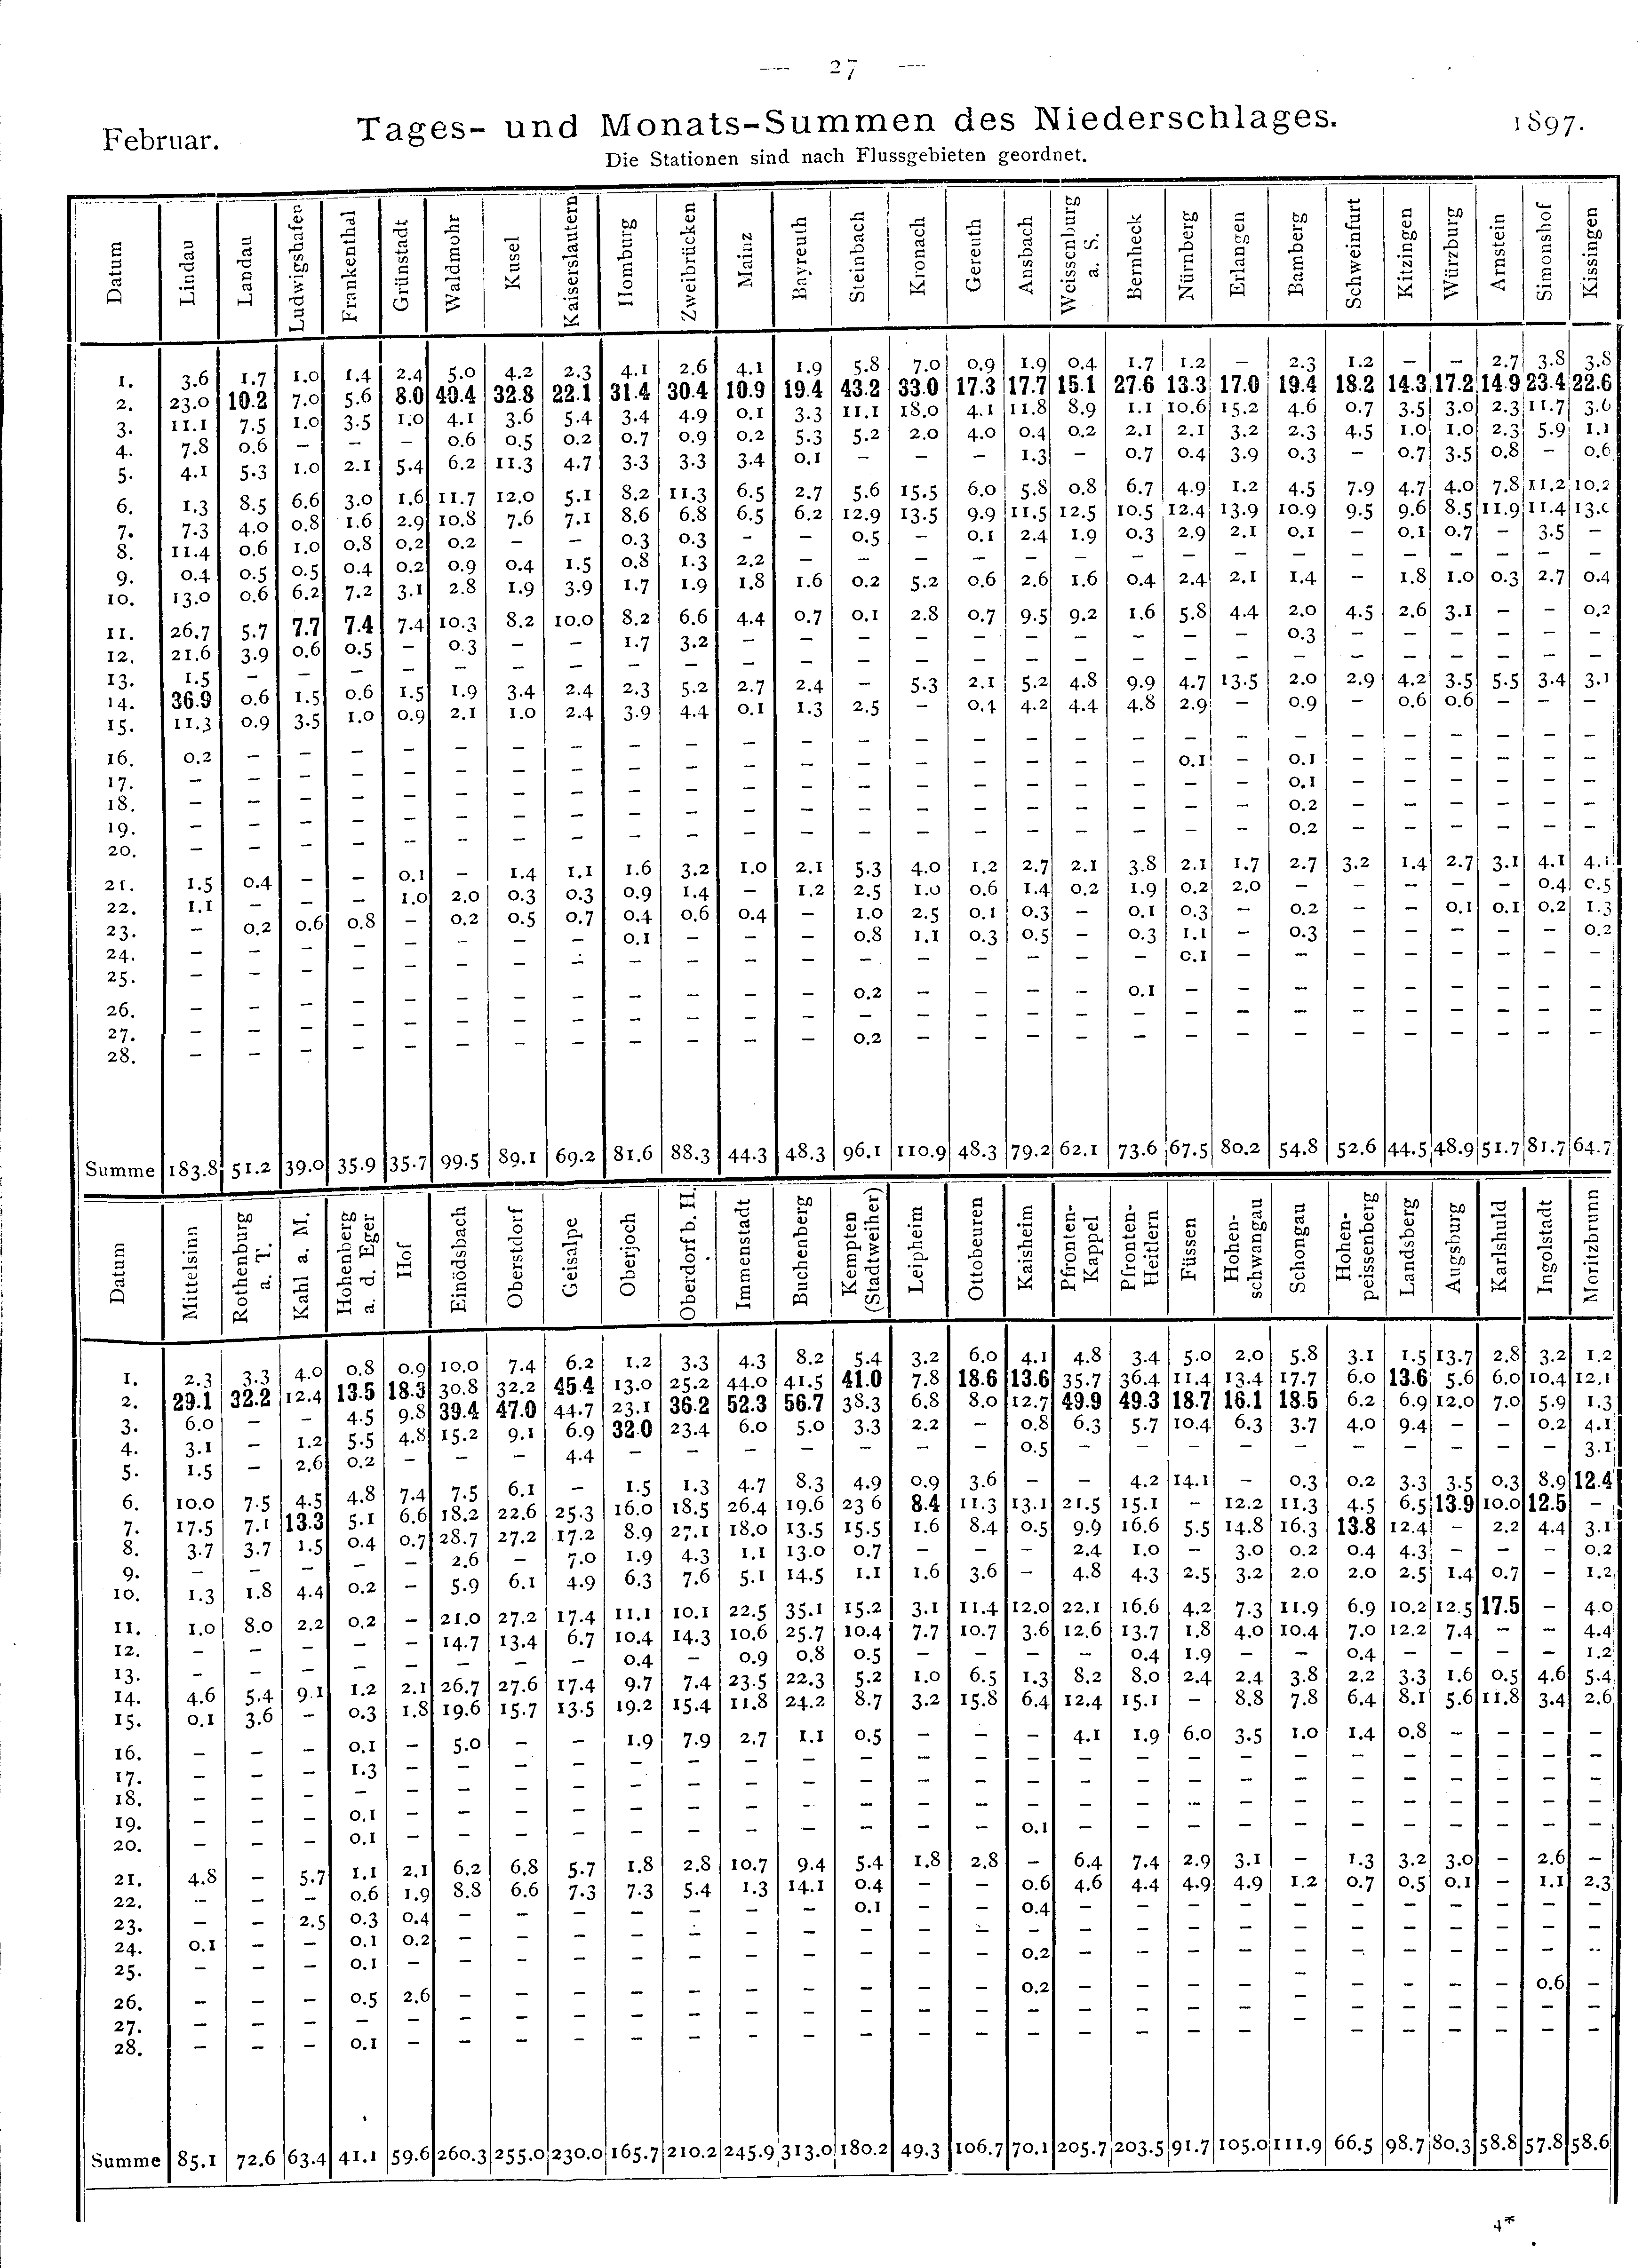 — 27 —
Februar. Tages- und Monats-Summen des Niederschlages. 1897.
Die Stationen sind nach Flussgebieten geordnet.
Datum Lindau Landau Ludwigshafen Frankenthal Grünstadt Waldmohr Kusel Kaiserslautern Homburg Zweibrücken Mainz Bayreuth Steinbach Kronach Gereuth Ansbach Weissenburg a. S. Bernheck Nürnberg Erlangen Bamberg Schweinfurt Kitzingen Würzburg Arnstein Simonshof Kissingen
1. 3.6 1.7 1.0 1.4 2.4 5.0 4.2 2.3 4.1 2.6 4.1 1.9 5.8 7.0 0.9 1.9 0.4 1.7 1.2 — 2.3 1.2 — — 2.7 3.8 3.8
2. 23.0 10.2 7.0 5.6 8.0 40.4 32.8 22.1 31.4 30.4 10.9 19.4 43.2 33.0 17.3 17.7 15.1 27.6 13.3 17.0 19.4 18.2 14.3 17.2 14.9 23.4 22.6
3. 11.1 7.5 1.0 3.5 1.0 4.1 3.6 5.4 3.4 4.9 0.1 3.3 11.1 18.0 4.1 11.8 8.9 1.1 10.6 15.2 4.6 0.7 3.5 3.0 2.3 11.7 3.6
4. 7.8 0.6 — — — 0.6 0.5 0.2 0.7 0.9 0.2 5.3 5.2 2.0 4.0 0.4 0.2 2.1 2.1 3.2 2.3 4.5 1.0 1.0 2.3 5.9 1.1
5. 4.1 5.3 1.0 2.1 5.4 6.2 11.3 4.7 3.3 3.3 3.4 0.1 — — — 1.3 — 0.7 0.4 3.9 0.3 — 0.7 3.5 0.8 — 0.6
6. 1.3 8.5 6.6 3.0 1.6 11.7 12.0 5.1 8.2 11.3 6.5 2.7 5.6 15.5 6.0 5.8 0.8 6.7 4.9 1.2 4.5 7.9 4.7 4.0 7.8 11.2 10.2
7. 7.3 4.0 0.8 1.6 2.9 10.8 7.6 7.1 8.6 6.8 6.5 6.2 12.9 13.5 9.9 11.5 12.5 10.5 12.4 13.9 10.9 9.5 9.6 8.5 11.9 11.4 13.0
8. 11.4 0.6 1.0 0.8 0.2 0.2 — — 0.3 0.3 — — 0.5 — 0.1 2.4 1.9 0.3 2.9 2.1 0.1 — 0.1 0.7 — 3.5 —
9. 0.4 0.5 0.5 0.4 0.2 0.9 0.4 1.5 0.8 1.3 2.2 — — — — — — — — — — — — — — — —
10. 13.0 0.6 6.2 7.2 3.1 2.8 1.9 3.9 1.7 1.9 1.8 1.6 0.2 5.2 0.6 2.6 1.6 0.4 2.4 2.1 1.4 — 1.8 1.0 0.3 2.7 0.4
11. 26.7 5.7 7.7 7.4 7.4 10.3 8.2 10.0 8.2 6.6 4.4 0.7 0.1 2.8 0.7 9.5 9.2 1.6 5.8 4.4 2.0 4.5 2.6 3.1 — — 0.2
12. 21.6 3.9 0.6 0.5 — 0.3 — — 1.7 3.2 — — — — — — — — — — 0.3 — — — — — —
13. 1.5 — — — — — — — — — — — — — — — — — — — — — — — — — —
14. 36.9 0.6 1.5 0.6 1.5 1.9 3.4 2.4 2.3 5.2 2.7 2.4 — 5.3 2.1 5.2 4.8 9.9 4.7 13.5 2.0 2.9 4.2 3.5 5.5 3.4 3.1
15. 11.3 0.9 3.5 1.0 0.9 2.1 1.0 2.4 3.9 4.4 0.1 1.3 2.5 — 0.1 4.2 4.4 4.8 2.9 — 0.9 — 0.6 0.6 — — —
16. 0.2 — — — — — — — — — — — — — — — — — — — — — — — — — —
17. — — — — — — — — — — — — — — — — — — 0.1 — 0.1 — — — — — —
18. — — — — — — — — — — — — — — — — — — — — 0.1 — — — — — —
19. — — — — — — — — — — — — — — — — — — — — 0.2 — — — — — —
20. — — — — — — — — — — — — — — — — — — — — 0.2 — — — — — —
21. 1.5 0.4 — — 0.1 — 1.4 1.1 1.6 3.2 1.0 2.1 5.3 4.0 1.2 2.7 2.1 3.8 2.1 1.7 2.7 3.2 1.4 2.7 3.1 4.1 4.1
22. 1.1 — — — 1.0 2.0 0.3 0.3 0.9 1.4 — 1.2 2.5 1.0 0.6 1.4 0.2 1.9 0.2 2.0 — — — — — 0.4 0.5
23. — 0.2 0.6 0.8 — 0.2 0.5 0.7 0.4 0.6 0.4 — 1.0 2.5 0.1 0.3 — 0.1 0.3 — 0.2 — — 0.1 0.1 0.2 1.3
24. — — — — — — — — 0.1 — — — 0.8 1.1 0.3 0.5 — 0.3 1.1 — 0.3 — — — — — 0.2
25. — — — — — — — — — — — — — — — — — — 0.1 — — — — — — — —
26. — — — — — — — — — — — — 0.2 — — — — 0.1 — — — — — — — — —
27. — — — — — — — — — — — — — — — — — — — — — — — — — — —
28. — — — — — — — — — — — — 0.2 — — — — — — — — — — — — — —
Summe 183.8 51.2 39.0 35.9 35.7 99.5 89.1 69.2 81.6 88.3 44.3 48.3 96.1 110.9 48.3 79.2 62.1 73.6 67.5 80.2 54.8 52.6 44.5 48.9 51.7 81.7 64.7
Datum Mittelsinn Rothenburg a. T. Kahl a. M. Hohenberg a. d. Eger Hof Einödsbach Oberstdorf Geisalpe Oberjoch Oberdorf b. H. Immenstadt Buchenberg Kempten (Stadtweiher) Leipheim Ottobeuren Kaisheim Pfronten-Kappel Pfronten-Heitlern Füssen Hohen-schwangau Schongau Hohen-peissenberg Landsberg Augsburg Karlshuld Ingolstadt Moritzbrunn
1. 2.3 3.3 4.0 0.8 0.9 10.0 7.4 6.2 1.2 3.3 4.3 8.2 5.4 3.2 6.0 4.1 4.8 3.4 5.0 2.0 5.8 3.1 1.5 13.7 2.8 3.2 1.2
2. 29.1 32.2 12.4 13.5 18.3 30.8 32.2 45.4 13.0 25.2 44.0 41.5 41.0 7.8 18.6 13.6 35.7 36.4 11.4 13.4 17.7 6.0 13.6 5.6 6.0 10.4 12.1
3. 6.0 — — 4.5 9.8 39.4 47.0 44.7 23.1 36.2 52.3 56.7 38.3 6.8 8.0 12.7 49.9 49.3 18.7 16.1 18.5 6.2 6.9 12.0 7.0 5.9 1.3
4. 3.1 — 1.2 5.5 4.8 15.2 9.1 6.9 32.0 23.4 6.0 5.0 3.3 2.2 — 0.8 6.3 5.7 10.4 6.3 3.7 4.0 9.4 — — 0.2 4.1
5. 1.5 — 2.6 0.2 — — — 4.4 — — — — — — — 0.5 — — — — — — — — — — 3.1
6. 10.0 7.5 4.5 4.8 7.4 7.5 6.1 — 1.5 1.3 4.7 8.3 4.9 0.9 3.6 — — 4.2 14.1 — 0.3 0.2 3.3 3.5 0.3 8.9 12.4
7. 17.5 7.1 13.3 5.1 6.6 18.2 22.6 25.3 16.0 18.5 26.4 19.6 23 6 8.4 11.3 13.1 21.5 15.1 — 12.2 11.3 4.5 6.5 13.9 10.0 12.5 —
8. 3.7 3.7 1.5 0.4 0.7 28.7 27.2 17.2 8.9 27.1 18.0 13.5 15.5 1.6 8.4 0.5 9.9 16.6 5.5 14.8 16.3 13.8 12.4 — 2.2 4.4 3.1
9. — — — — — 2.6 — 7.0 1.9 4.3 1.1 13.0 0.7 — — — 2.4 1.0 — 3.0 0.2 0.4 4.3 — — — 0.2
10. 1.3 1.8 4.4 0.2 — 5.9 6.1 4.9 6.3 7.6 5.1 14.5 1.1 1.6 3.6 — 4.8 4.3 2.5 3.2 2.0 2.0 2.5 1.4 0.7 — 1.2
11. 1.0 8.0 2.2 0.2 — 21.0 27.2 17.4 11.1 10.1 22.5 35.1 15.2 3.1 11.4 12.0 22.1 16.6 4.2 7.3 11.9 6.9 10.2 12.5 17.5 — 4.0
12. — — — — — 14.7 13.4 6.7 10.4 14.3 10.6 25.7 10.4 7.7 10.7 3.6 12.6 13.7 1.8 4.0 10.4 7.0 12.2 7.4 — — 4.4
13. — — — — — — — — 0.4 — 0.9 0.8 0.5 — — — — 0.4 1.9 — — 0.4 — — — — 1.2
14. 4.6 5.4 9.1 1.2 2.1 26.7 27.6 17.4 9.7 7.4 23.5 22.3 5.2 1.0 6.5 1.3 8.2 8.0 2.4 2.4 3.8 2.2 3.3 1.6 0.5 4.6 5.4
15. 0.1 3.6 — 0.3 1.8 19.6 15.7 13.5 19.2 15.4 11.8 24.2 8.7 3.2 15.8 6.4 12.4 15.1 — 8.8 7.8 6.4 8.1 5.6 11.8 3.4 2.6
16. — — — 0.1 — 5.0 — — 1.9 7.9 2.7 1.1 0.5 — — — 4.1 1.9 6.0 3.5 1.0 1.4 0.8 — — — —
17. — — — 1.3 — — — — — — — — — — — — — — — — — — — — — — —
18. — — — — — — — — — — — — — — — — — — — — — — — — — — —
19. — — — 0.1 — — — — — — — — — — — — — — — — — — — — — — —
20. — — — 0.1 — — — — — — — — — — — 0.1 — — — — — — — — — — —
21. 4.8 — 5.7 1.1 2.1 6.2 6.8 5.7 1.8 2.8 10.7 9.4 5.4 1.8 2.8 — 6.4 7.4 2.9 3.1 — 1.3 3.2 3.0 — 2.6 —
22. — — — 0.6 1.9 8.8 6.6 7.3 7.3 5.4 1.3 14.1 0.4 — — 0.6 4.6 4.4 4.9 4.9 1.2 0.7 0.5 0.1 — 1.1 2.3
23. — — 2.5 0.3 0.4 — — — — — — — 0.1 — — 0.4 — — — — — — — — — — —
24. 0.1 — — 0.1 0.2 — — — — — — — — — — — — — — — — — — — — — —
25. — — — 0.1 — — — — — — — — — — — 0.2 — — — — — — — — — — —
26. — — — 0.5 2.6 — — — — — — — — — — 0.2 — — — — — — — — — 0.6 —
27. — — — — — — — — — — — — — — — — — — — — — — — — — — —
28. — — — 0.1 — — — — — — — — — — — — — — — — — — — — — — —
Summe 85.1 72.6 63.4 41.1 59.6 260.3 255.0 230.0 165.7 210.2 245.9 313.0 180.2 49.3 106.7 70.1 205.7 203.5 91.7 105.0 111.9 66.5 98.7 80.3 58.8 57.8 58.6
4*